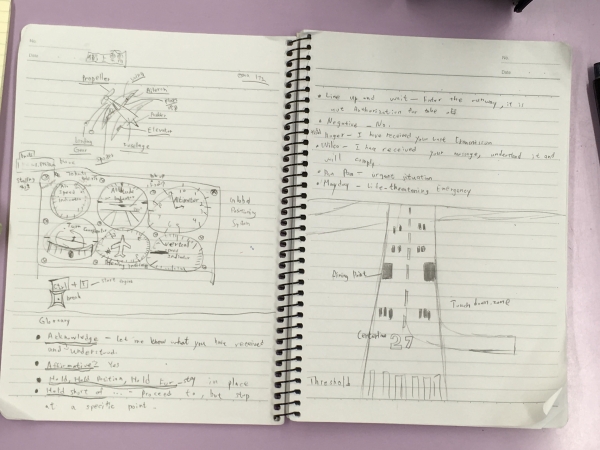 No.
Date
Propeller
wing
Aileron
flaps
Rudder
Elevator
Fuselage
Landing
Gear
Air
Speed
Indicator
Attitude
Indicator
Altimeter
Turn
Coordinator
Heading Indicator
Vertical
Speed
Indicator
System
Ctrl + I - start engine
break
Glossary
• Acknowledge - let me know what you have received
and understood.
• Affirmative - Yes
• Hold, Hold Position, Hold For - stay in place
• Hold short of ... - Proceed to, but stop
at a specific point.
No.
Date
• Line up and wait - Enter the runway, it is
not Authorization for take off
• Negative - No.
• Roger - I have received your last transmission
• Wilco - I have received your message, understand it and
will comply
• Pan Pan - urgent situation
• Mayday - Life-threatening Emergency
Aiming Point
Touch down zone
Centerline
27
Threshold